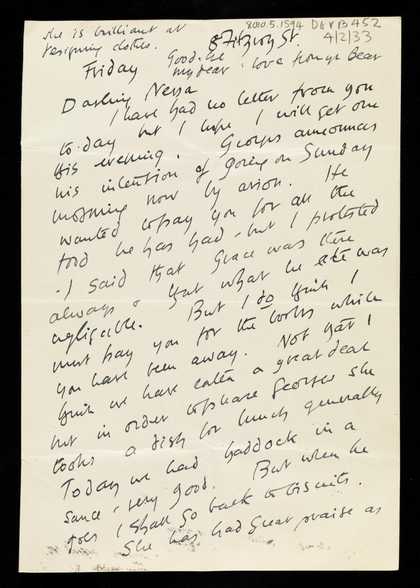 she is brilliant at
designing clothes.
8010.5.1594
D & V B 452
4/2/33
8 Fitzroy St.
Good-bye
Friday my dear. love from yr Bear
Darling Nessa
I have had no letter from you
to-day but I hope I will get one
this evening. Georges announces
his intention of going on Sunday
morning now by avion. He
wanted to pay you for all the
food he has had - but I protested
- I said that Grace was there
always & that what he ate was
negligible. But I do think I
must pay you for the books which
you have been away. Not that I
think we have eaten a great deal
but in order to please Georges she
cooks a dish for lunch generally
Today we had haddock in a
sauce, very good. But when he
goes I shall go back to biscuits.
She has had great praise as